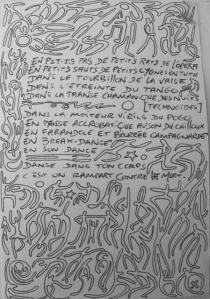 EN PETITS PAS DE PETITS RATS DE L'OPÉRA
EN PETITS SAUTS DE PETITS CYGNES EN TUTU
DANS LE TOURBILLON DE LA VALSE
DANS L'ÉTREINTE DU TANGO
DANS LA TRANSE CHAMANIQUE DES NUITS
[TECHNOÏDES]
DANS LA MOITEUR VIRILE DU POGO
EN PASSE ACCROBATIQUE AU SON DU
EN FARANDOLE ET BOURRÉE CAMPAGNARDE
EN BREAK-DANSE
EN SUN DANCE
DANSE DANS TON CORPS
C'EST UN REMPART CONTRE LA MORT.